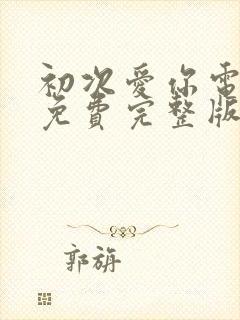 初次愛你電
免費完整版
郭旃